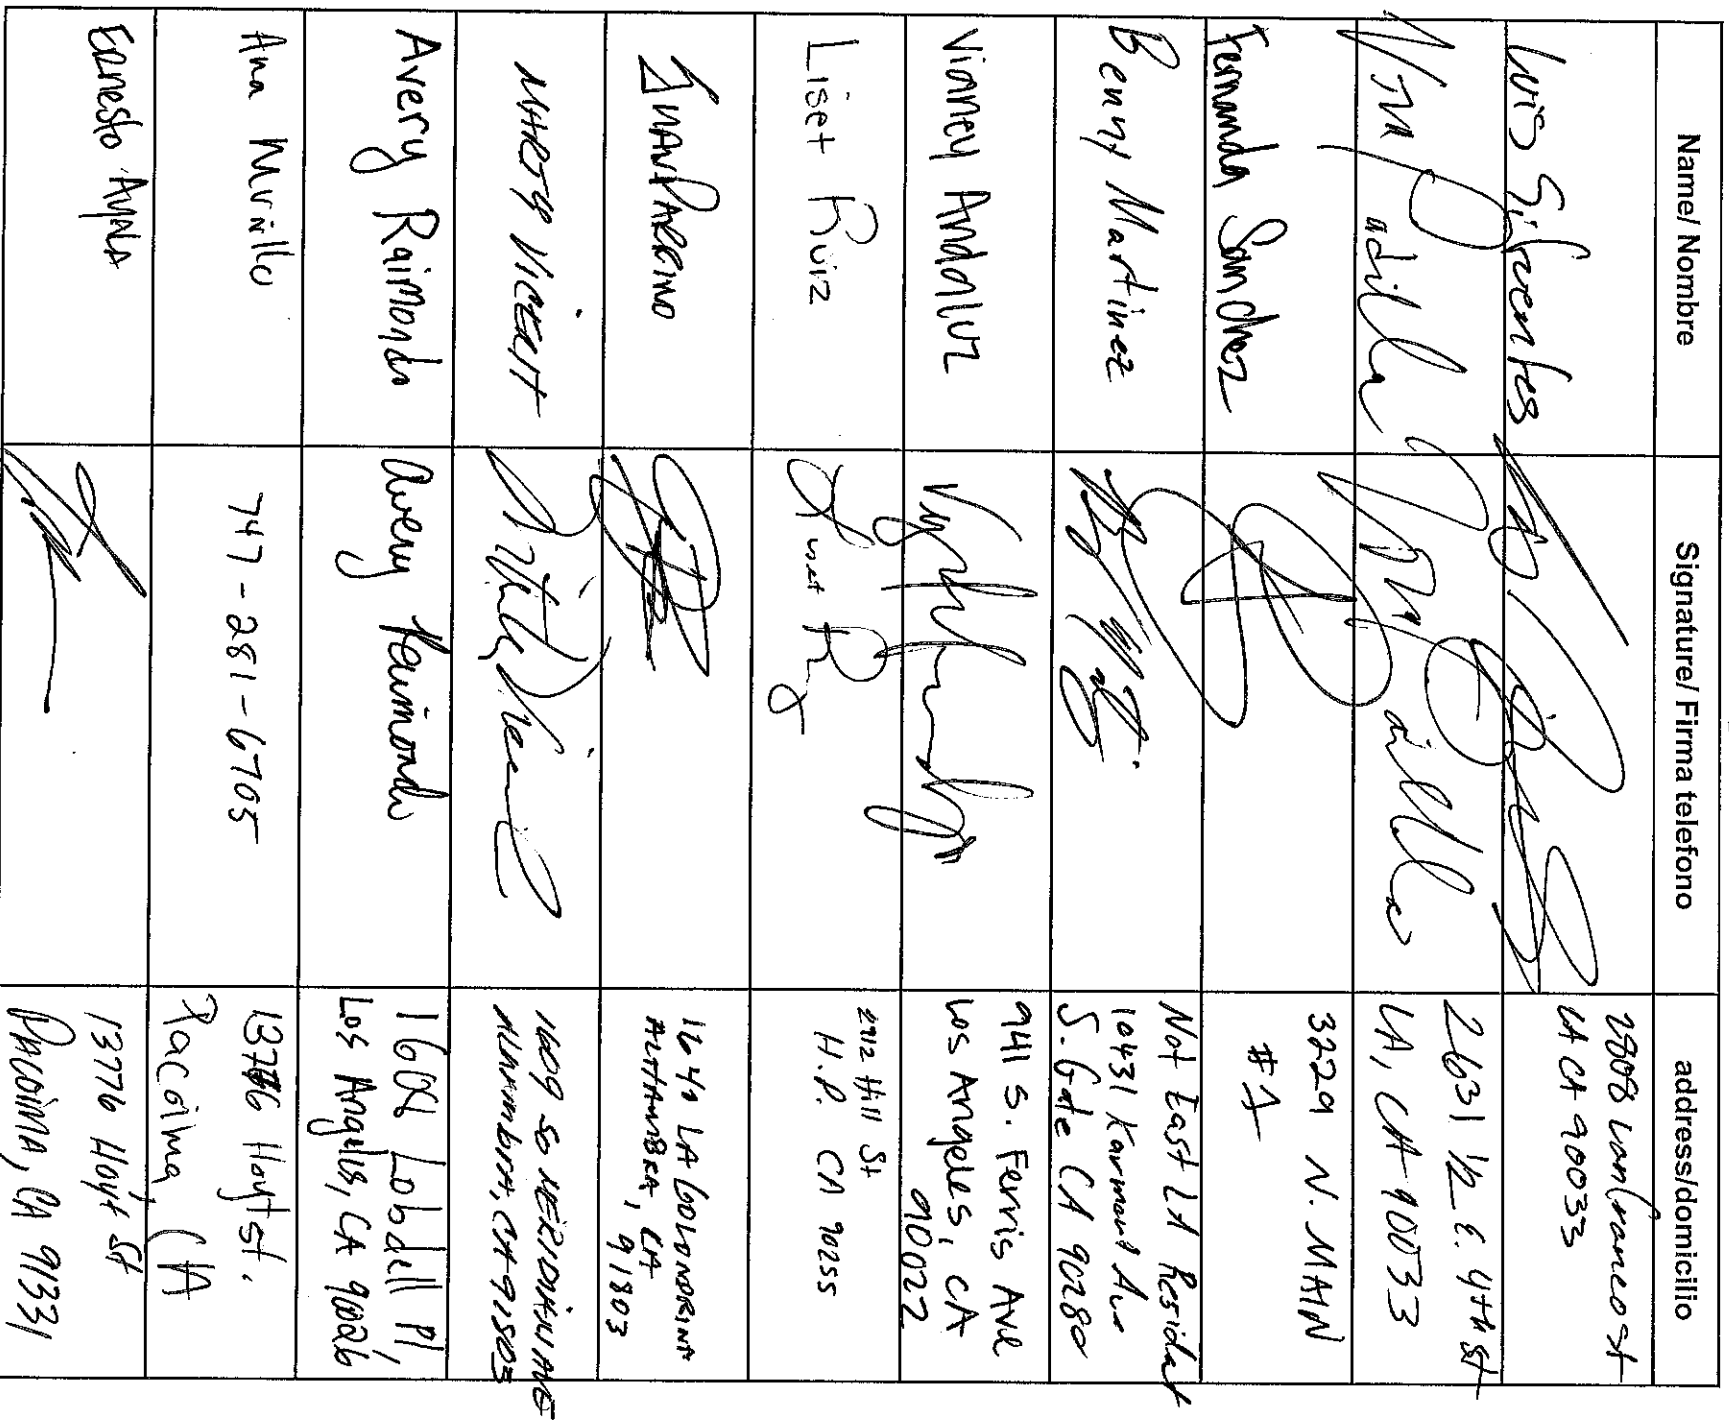 Name/ Nombre
Signature/ Firma telefono
address/domicilio
Luis Sifuentes
2808 Lanfranco st
LA CA 90033
Nina Padilla
Nina Padilla
2631 1/2 E. 4th st
LA, CA 90033
Fernanda Sanchez
3229 N. MAIN
#1
Beny Martinez
Not East LA Resident
10431 Karmont Ave
S. Gate CA 90280
Vianey Andaluz
941 S. Ferris Ave
Los Angeles, CA
90022
Liset Ruiz
Liset R
2912 Hill St
H.P. CA 90255
JUAN PARGINO
1640 LA GOLONDRINA
ALHAMBRA, CA
91803
MARTY VICENTE
1609 SO MERIDIAN AVE
ALHAMBRA, CA 91803
Avery Raimondo
Avery Raimondo
Lobdell Pl,
Los Angeles, CA 90026
Ana Murillo
747-281-6705
13776 Hoyt st.
Pacoima, CA
Ernesto AYALA
13776 Hoyt St
PACOIMA, CA 91331